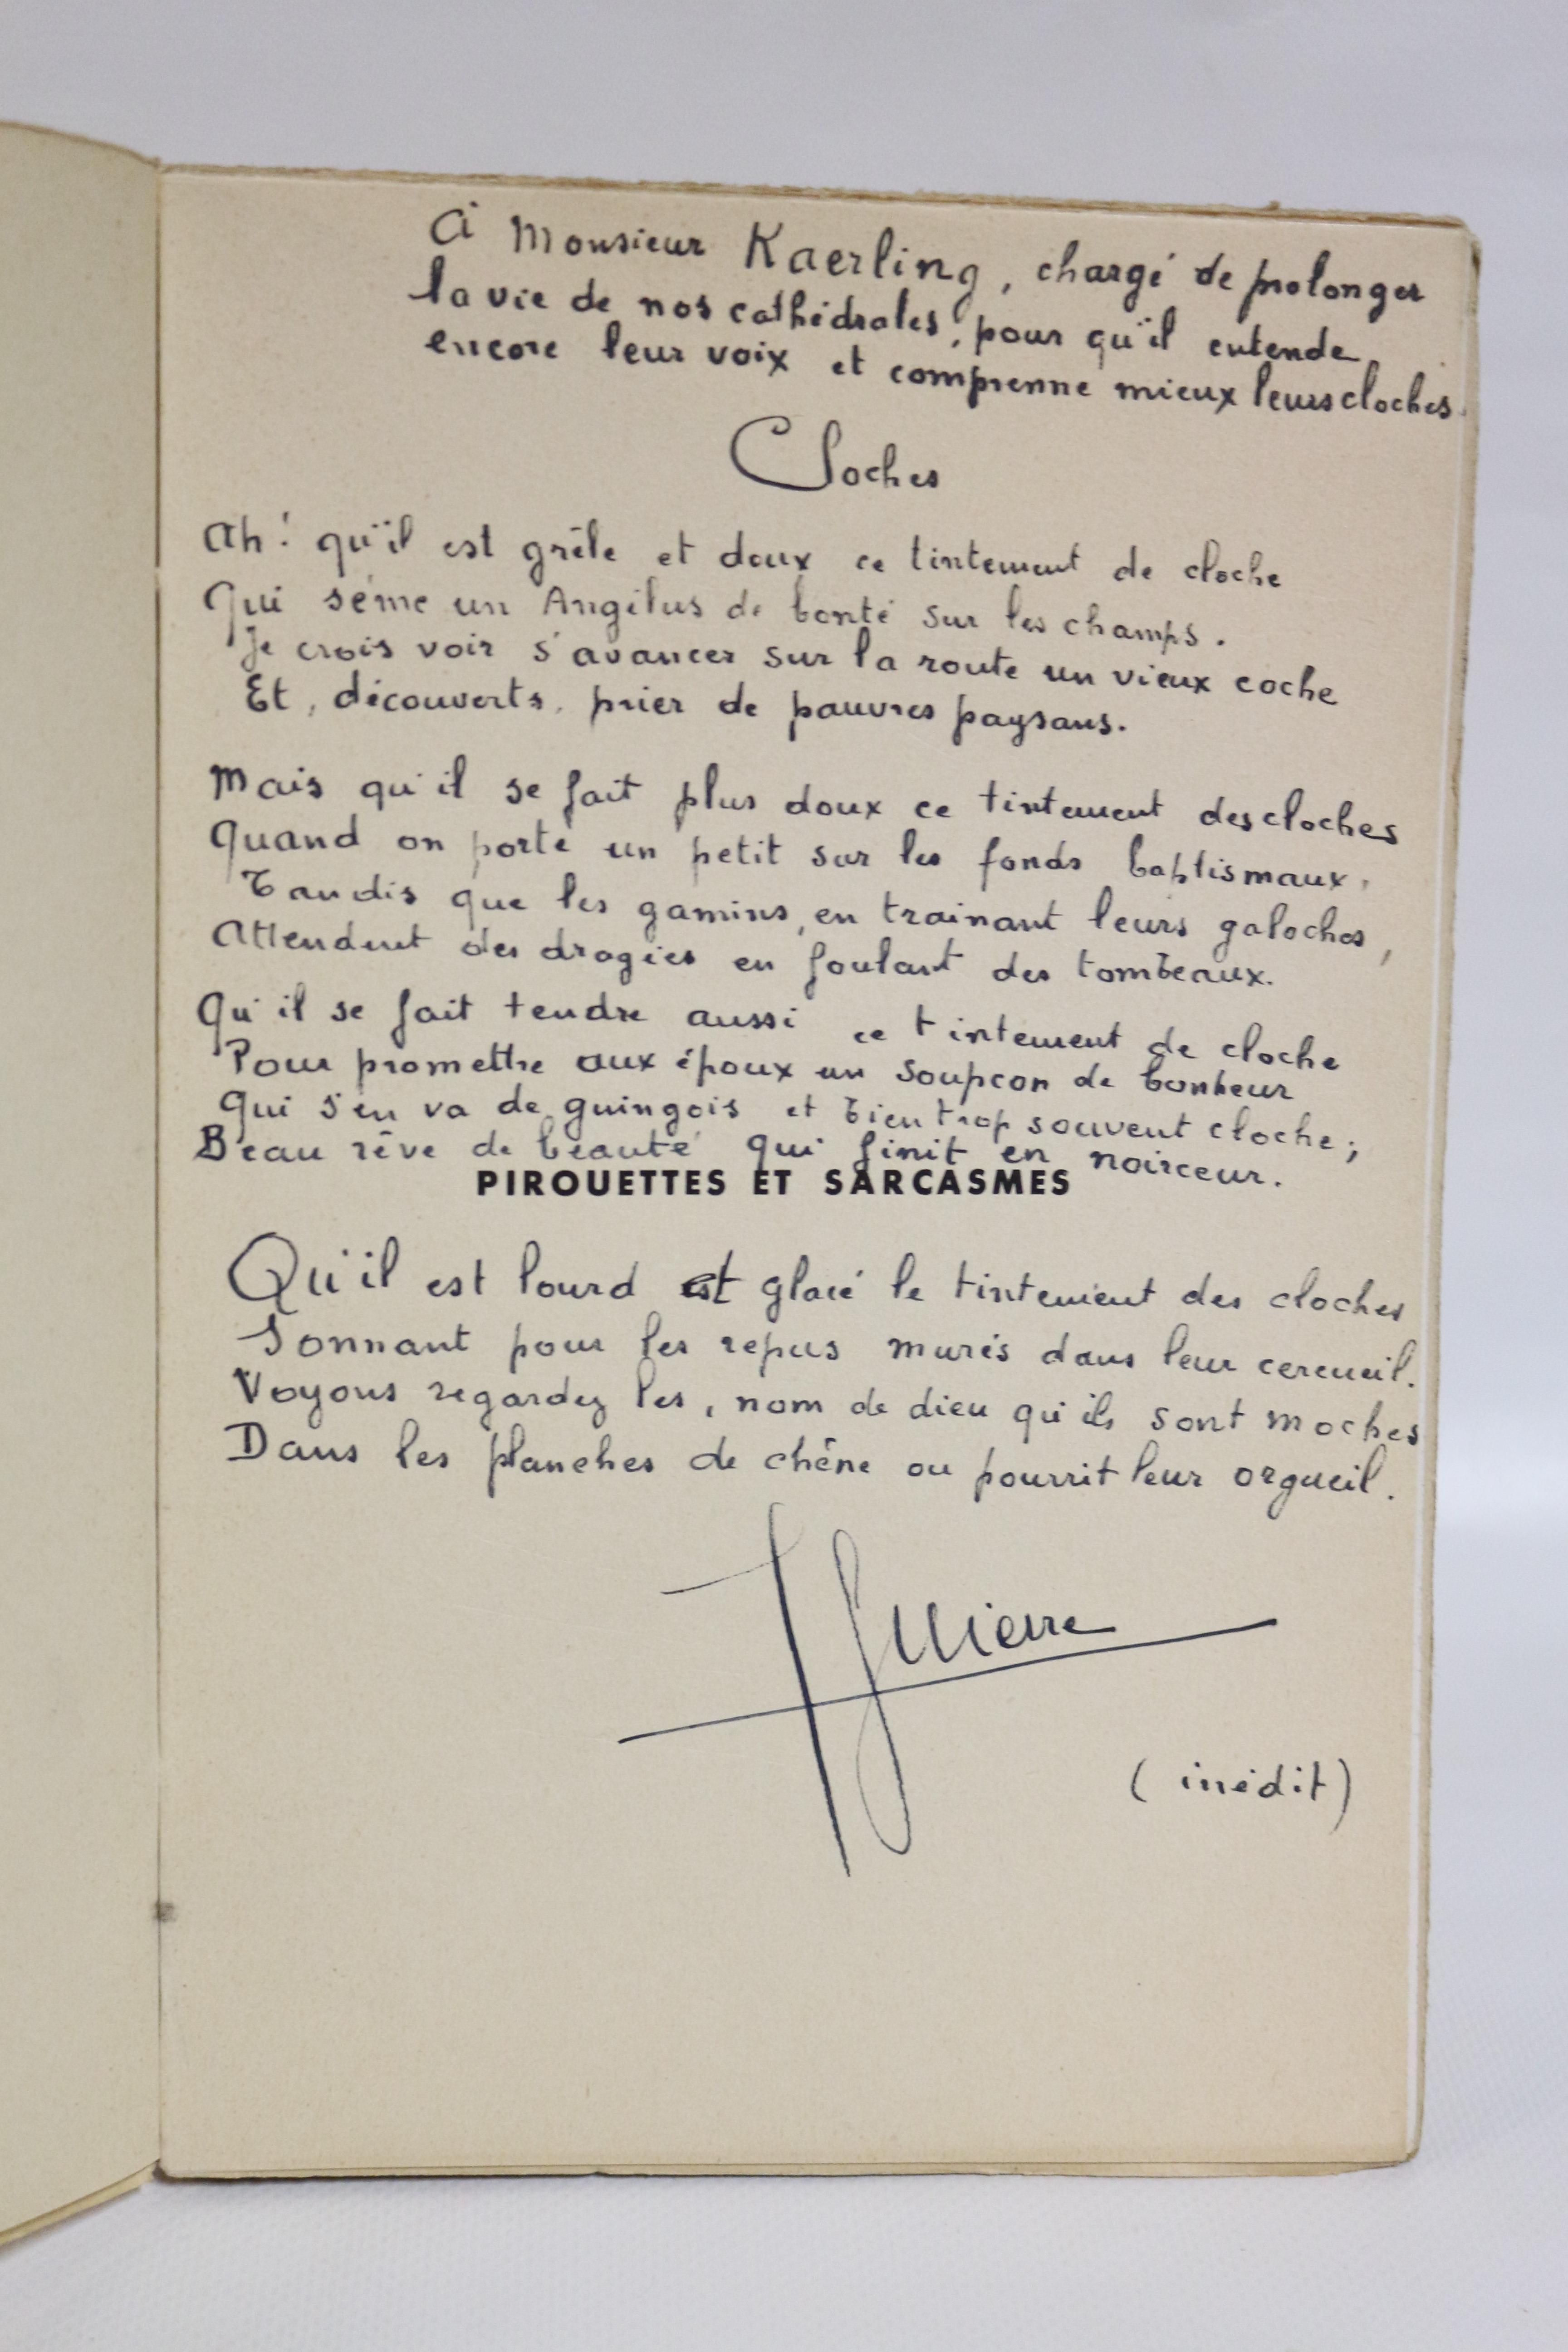 A Monsieur Kaerling, chargé de prolonger
la vie de nos cathédrales, pour qu'il entende
encore leur voix et comprenne mieux leurs cloches.
Cloches
Ah! qu'il est grêle et doux ce tintement de cloche
Qui sème un Angélus de bonté sur les champs.
Je crois voir s'avancer sur la route un vieux coche
Et, découverts, prier de pauvres paysans.
Mais qu'il se fait plus doux ce tintement des cloches
Quand on porte un petit sur les fonds baptismaux,
Tandis que les gamins, en trainant leurs galoches,
Attendent des dragées en foulant des tombeaux.
Qu'il se fait tendre aussi ce tintement de cloche
Pour promettre aux époux un soupcon de bonheur
Qui s'en va de guingois et bien trop souvent cloche;
Beau rêve de beauté qui finit en noirceur.
PIROUETTES ET SARCASMES
Qu'il est lourd et glacé le tintement des cloches
Sonnant pour les repus murés dans leur cercueil.
Voyons regardez les, nom de dieu qu'ils sont moches
Dans les planches de chêne ou pourrit leur orgueil.
(inédit)